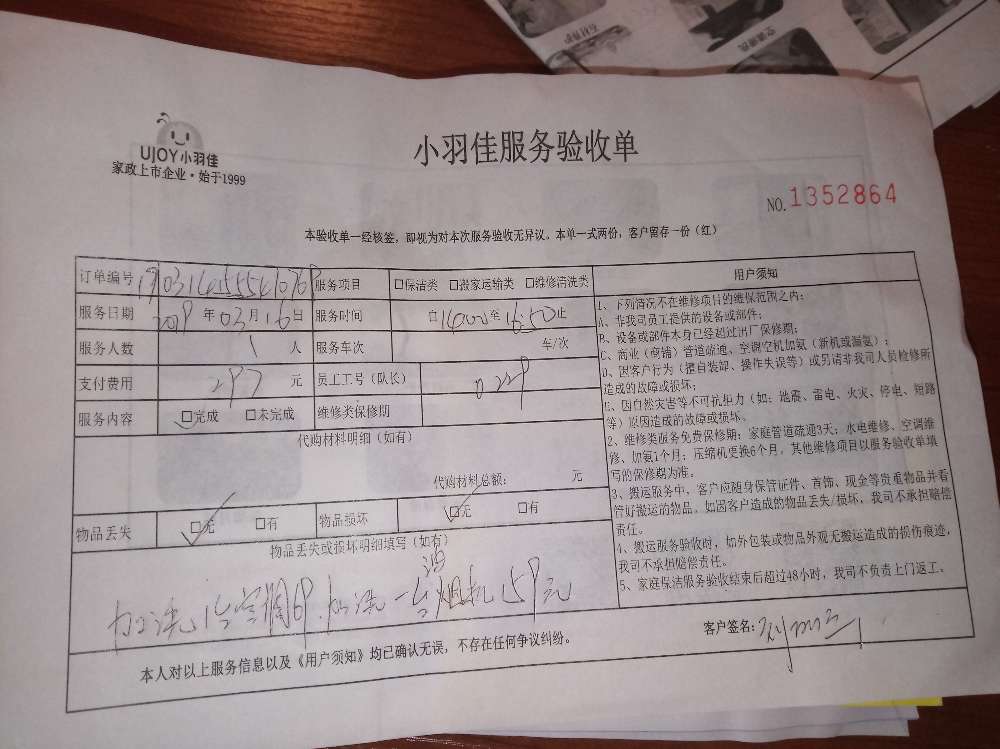 石材养护
空调清洗
UJOY小羽佳
家政上市企业·始于1999
小羽佳服务验收单
NO.1352864
本验收单一经核签，即视为对本次服务验收无异议。本单一式两份，客户留存一份（红）
订单编号 服务项目 □保洁类 □搬家运输类 □维修清洗类
服务日期 2019年03月16日 服务时间 自1400至1650止
服务人数 1人 服务车次 车/次
支付费用 297元 员工工号（队长）
服务内容 □完成 □未完成 维修类保修期
代购材料明细（如有）
代购材料总额： 元
物品丢失 □无 □有 物品损坏 □无 □有
物品丢失或损坏明细填写（如有）
加洗1台空调69.加洗一台油烟机159元
本人对以上服务信息以及《用户须知》均已确认无误，不存在任何争议纠纷。
用户须知
1、下列情况不在维修项目的维保范围之内：
A、非我司员工提供的设备或部件；
B、设备或部件本身已经超过出厂保修期；
C、商业（商铺）管道疏通、空调空机加氨（新机或漏氨）；
D、因客户行为（擅自装卸、操作失误等）或另请非我司人员检修所
造成的故障或损坏；
E、因自然灾害等不可抗拒力（如：地震、雷电、火灾、停电、短路
等）原因造成的故障或损坏。
2、维修类服务免费保修期：家庭管道疏通3天；水电维修、空调维
修、加氨1个月；压缩机更换6个月，其他维修项目以服务验收单填
写的保修期为准。
3、搬运服务中，客户应随身保管证件、首饰、现金等贵重物品并看
管好搬运的物品。如因客户造成的物品丢失/损坏，我司不承担赔偿
责任。
4、搬运服务验收时，如外包装或物品外观无搬运造成的损伤痕迹，
我司不承担赔偿责任。
5、家庭保洁服务验收结束后超过48小时，我司不负责上门返工。
客户签名：